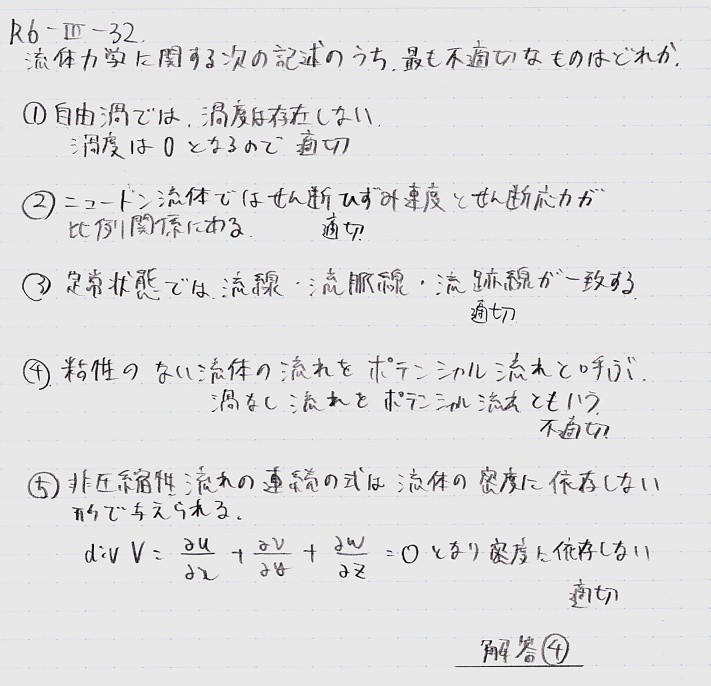 R6-Ⅲ-32.
流体力学に関する次の記述のうち、最も不適切なものはどれか.
① 自由渦では、渦度は存在しない.
渦度は0となるので 適切
② ニュートン流体ではせん断ひずみ速度とせん断応力が
比例関係にある. 適切
③ 定常状態では、流線・流脈線・流跡線が一致する
適切
④ 粘性のない流体の流れをポテンシャル流れと呼ぶ.
渦なし流れをポテンシャル流れともいう
不適切
⑤ 非圧縮性流れの連続の式は流体の密度に依存しない
形で与えられる.
div V = ∂u/∂x + ∂v/∂y + ∂w/∂z = 0 となり密度に依存しない
適切
解答④